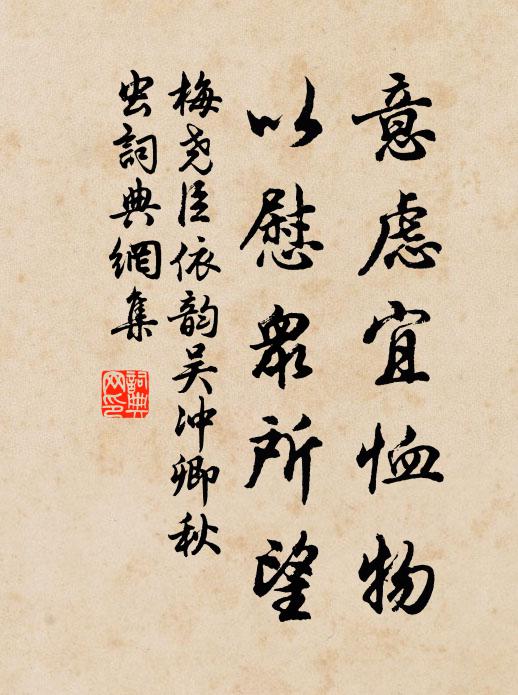 意慮宜恤物
以慰眾所望
梅堯臣依韵吴冲卿秋
虫詞典網集
詞典
网印